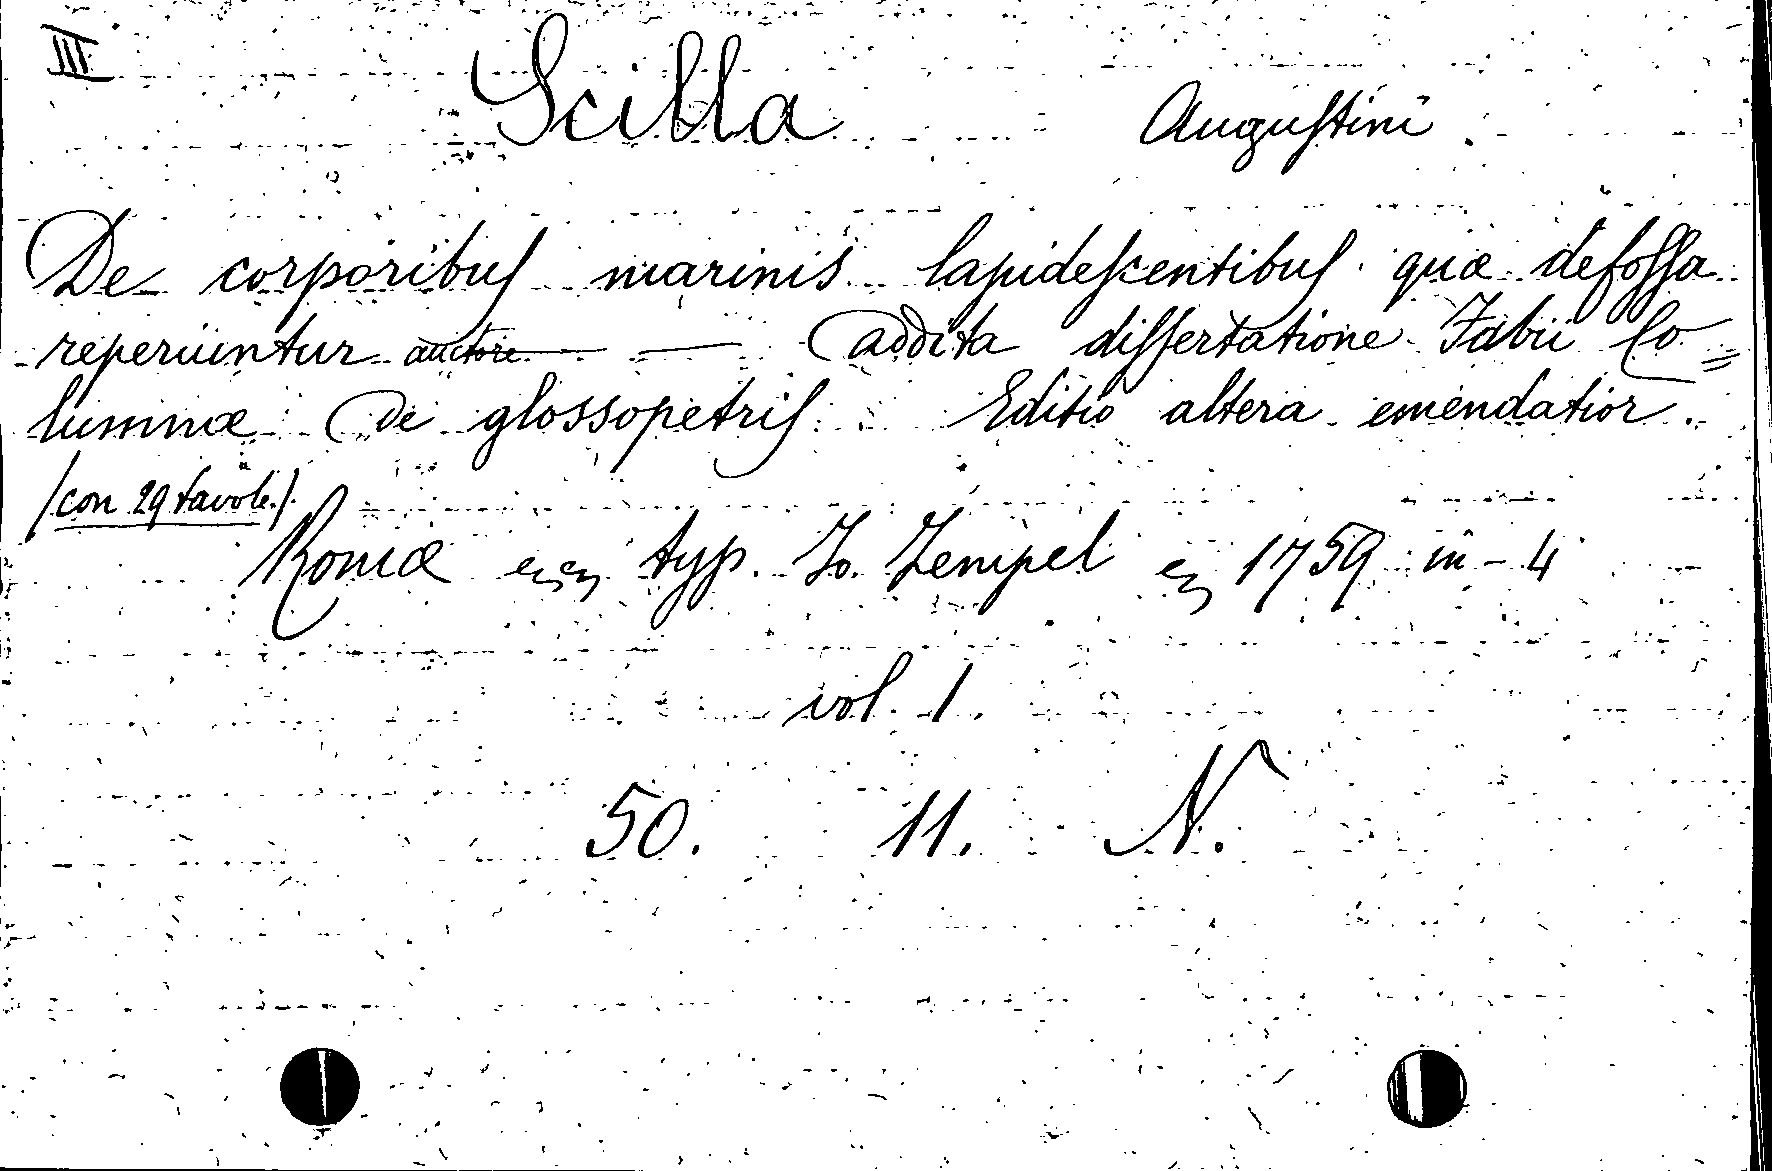 III
Scilla Augustini
De corporibus marinis lapidescentibus quæ defossa
reperiuntur auctore — — addita dissertatione Fabii Co=
lumnæ De glossopetris Editio altera emendatior.
(con 29 tavole.)
Romæ ex typ. Jo. Zempel 1759 in-4
vol. 1.
50. 11. N.